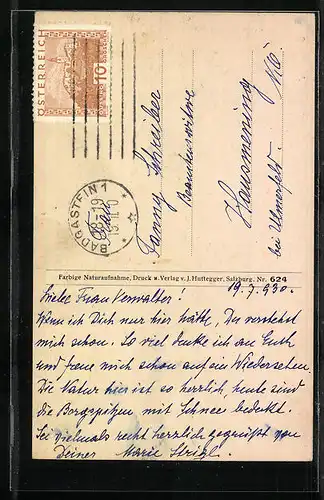 ÖSTERREICH
10
BADGASTEIN 1
Fanny Schreiber
Beamtenswitwe
Hausmening
bei Ulmerfeld. NÖ
Farbige Naturaufnahme, Druck u. Verlag v. J. Huttegger, Salzburg. Nr. 624
19.7.930.
Liebe Frau Verwalter!
Wenn ich Dich nur hier hätte, Du verstehst
mich schon. So viel denke ich an Euch
und freue mich schon auf ein Wiedersehen.
Die Natur hier ist so herrlich, heute sind
die Bergspitzen mit Schnee bedeckt.
Sei vielmals recht herzlich gegrüßt von
Deiner Marie Strigl.